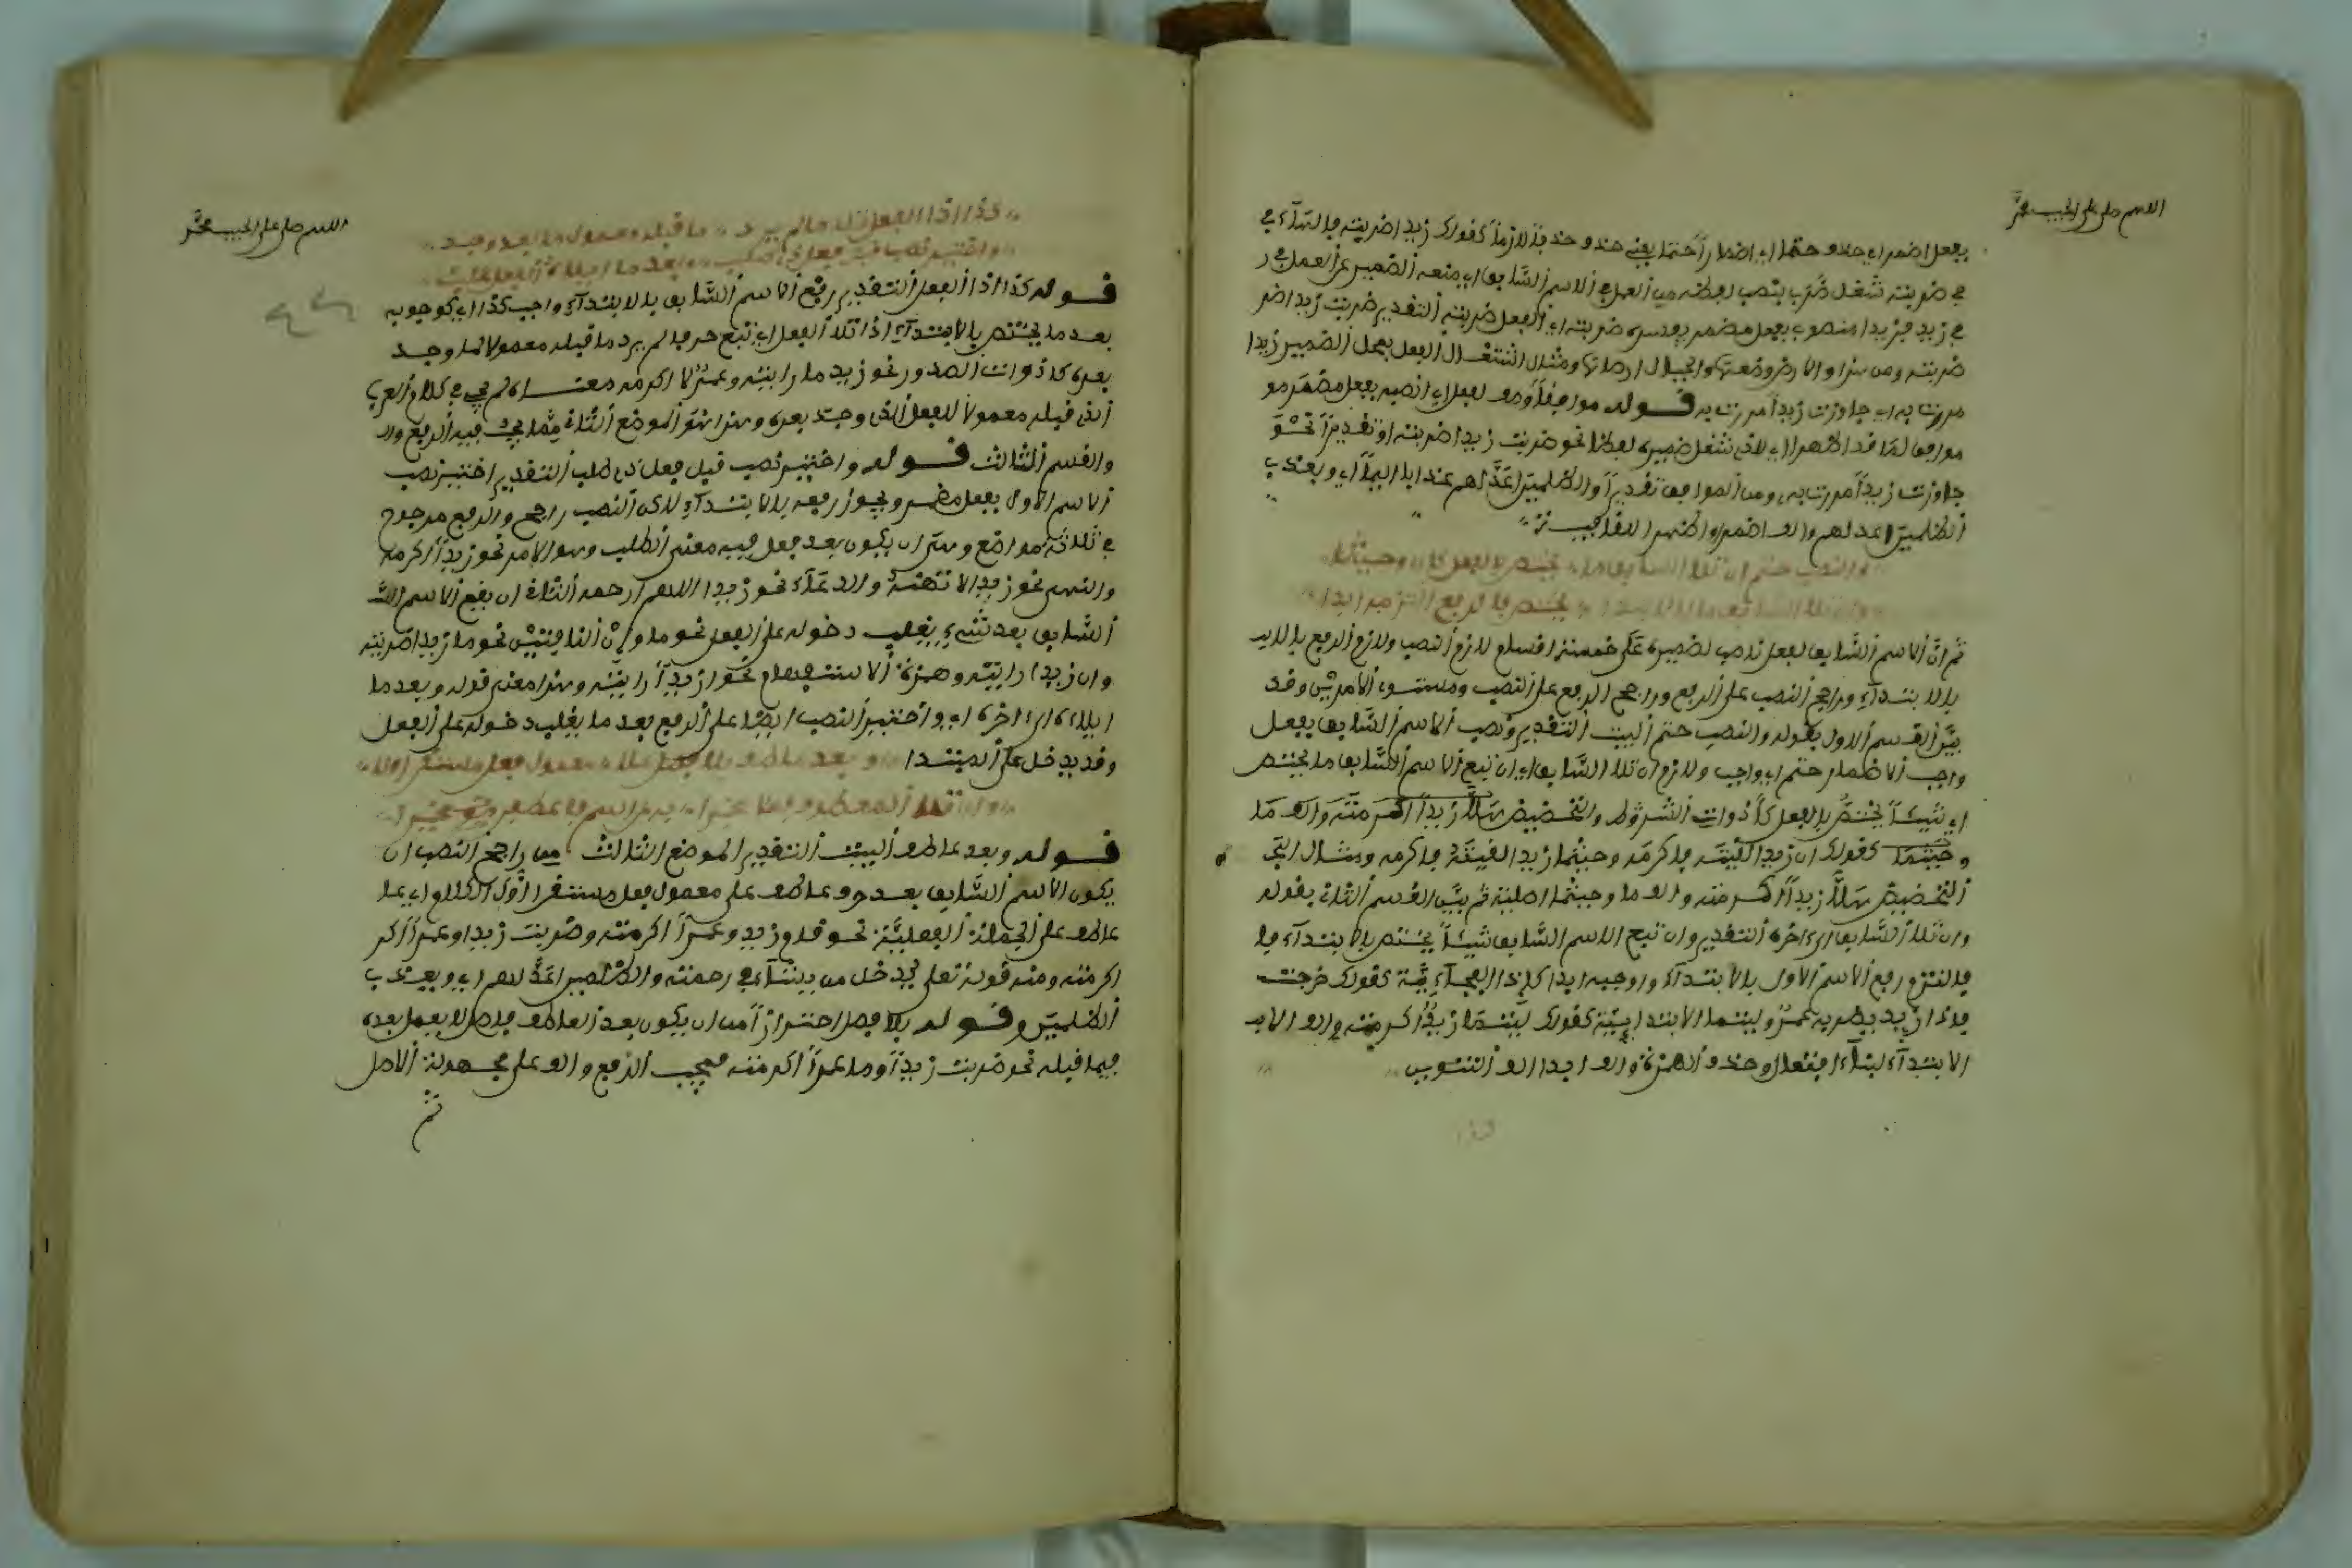 اللهم صل على الحبيب محمد
بفعل اضمرا اي حذف حتما اي اضمارا حتما يعني حذف حذفا لازما كقولك زيدا ضربته فالهاء في
في ضربته شغل ضرب بنصب لفظه من العمل في الاسم السابق اي منعه الضمير عن العمل في
في زيد فزيدا منصوب بفعل مضمر يفسره ضربته اي الفعل ضربته التقدير ضربت زيدا ضر
ضربته ومن هذا والارض وضعها والجبال ارساها ومثال اشتغال الفعل بمحل الضمير زيدا
مررت به اي جاوزت زيدا مررت به قوله موافقا وهو لفعل اي انصبه بفعل مضمر مو
موافق لما قد اظهرا اي للذي شغل ضميره لفظا نحو ضربت زيدا ضربته او تقديرا نحو
جاوزت زيدا مررت به ومن الموافق تقديرا والظلمين اعد لهم عذابا اليما اي ويعذب
الظلمين اعد لهم والف اضمرا واظهرا للقافية
والنصب حتم ان تلا السابق ما يختص بالفعل كان وحيثما
وان تلا السابق ما بالابتدا يختص فالرفع التزمه ابدا
ثم ان الاسم السابق لفعل ناصب لضميره على خمسة اقسام لازم النصب ولازم الرفع بالابت
بالابتداء وراجح النصب على الرفع وراجح الرفع على النصب ومستوي الامرين وقد
بين القسم الاول بقوله والنصب حتم البيت التقدير ونصب الاسم السابق بفعل
واجب الاضمار حتم اي واجب ولازم ان تلا السابق اي ان تبع الاسم السابق ما يختص
اي شيئا يختص بالفعل كأدوات الشروط والتخضيض هلا زيدا اكرمته والف ما
وحيثما كقولك ان زيدا لقيته فاكرمه وحيثما زيدا لقيته فاكرمه ومثال التخ
التخضيض هلا زيدا اكرمته والف ما وحيثما اصلية ثم بين القسم الثاني بقوله
وان تلا السابق الى اخره التقدير وان تبع الاسم السابق شيئا يختص بالابتداء فا
فالتزم رفع الاسم الاول بالابتداء واوجبه ابدا كإذا الفجائية كقولك خرجت
فاذا زيد يضربه عمرو وليتما الابتدائية كقولك ليتما زيد اكرمته والف الاب
الابتداء لبناء افتعال وحذف الهمزة والف ابدا الف التنوين
اللهم صل على الحبيب محمد
كذا اذا الفعل تلا ما لم يرد ما قبله معمول ما بعد وجد
واختير نصب قبل فعل ذي طلب وبعد ما ايلاؤه الفعل غلب
قوله كذا اذا الفعل التقدير رفع الاسم السابق بالابتداء واجب كذا اي كوجوبه
بعد ما يختص بالابتداء اذا تلا الفعل اي تبع حرفا لم يرد ما قبله معمولا لما وجد
بعده كأدوات الصدور نحو زيد ما رايته وعمرو لا اكرمه معناه لم يجي في كلام العرب
الذي قبله معمولا للفعل الذي وجد بعده وهذا هو الموضع الثاني مما يجب فيه الرفع وال
والقسم الثالث قوله واختير نصب قبل فعل ذي طلب التقدير اختير نصب
الاسم الاول بفعل مضمر ويجوز رفعه بالابتداء لاكن النصب راجح والرفع مرجوح
في ثلاثة مواضع وهي ان يكون بعد فعل فيه معنى الطلب وهو الامر نحو زيدا اكرمه
والنهي نحو زيدا لا تهنه والدعاء نحو زيدا اللهم ارحمه الثاني ان يقع الاسم الس
السابق بعد شيء يغلب دخوله على الفعل نحو ما وإن النافيتين نحو ما زيدا ضربته
وان زيدا رايته وهمزة الاستفهام نحو ازيدا رايته وهذا معنى قوله وبعد ما
ايلاؤه الى اخره اي واختير النصب ايضا على الرفع بعد ما يغلب دخوله على الفعل
وقد يدخل على المبتدا وبعد عاطف بلا فصل على معمول فعل مستقر اولا
وان تلا المعطوف فعلا مخبرا به عن اسم فاعطفن مخيرا
قوله وبعد عاطف البيت التقدير الموضع الثالث من راجح النصب ان
يكون الاسم السابق بعد حرف عاطف على معمول فعل مستقر اول الكلام اي على
عاطف على الجملة الفعلية نحو قام زيد وعمرا اكرمته وضربت زيدا وعمرا اكر
اكرمته ومنه قوله تعلى يدخل من يشاء في رحمته والظلمين اعد لهم اي ويعذب
الظلمين وقوله بلا فصل احترازا من ان يكون بعد العاطف فاصل لا يعمل بعده
فيما قبله نحو ضربت زيدا وما عمرا اكرمته فيجب الرفع والف على مجهولة الاصل
ثم